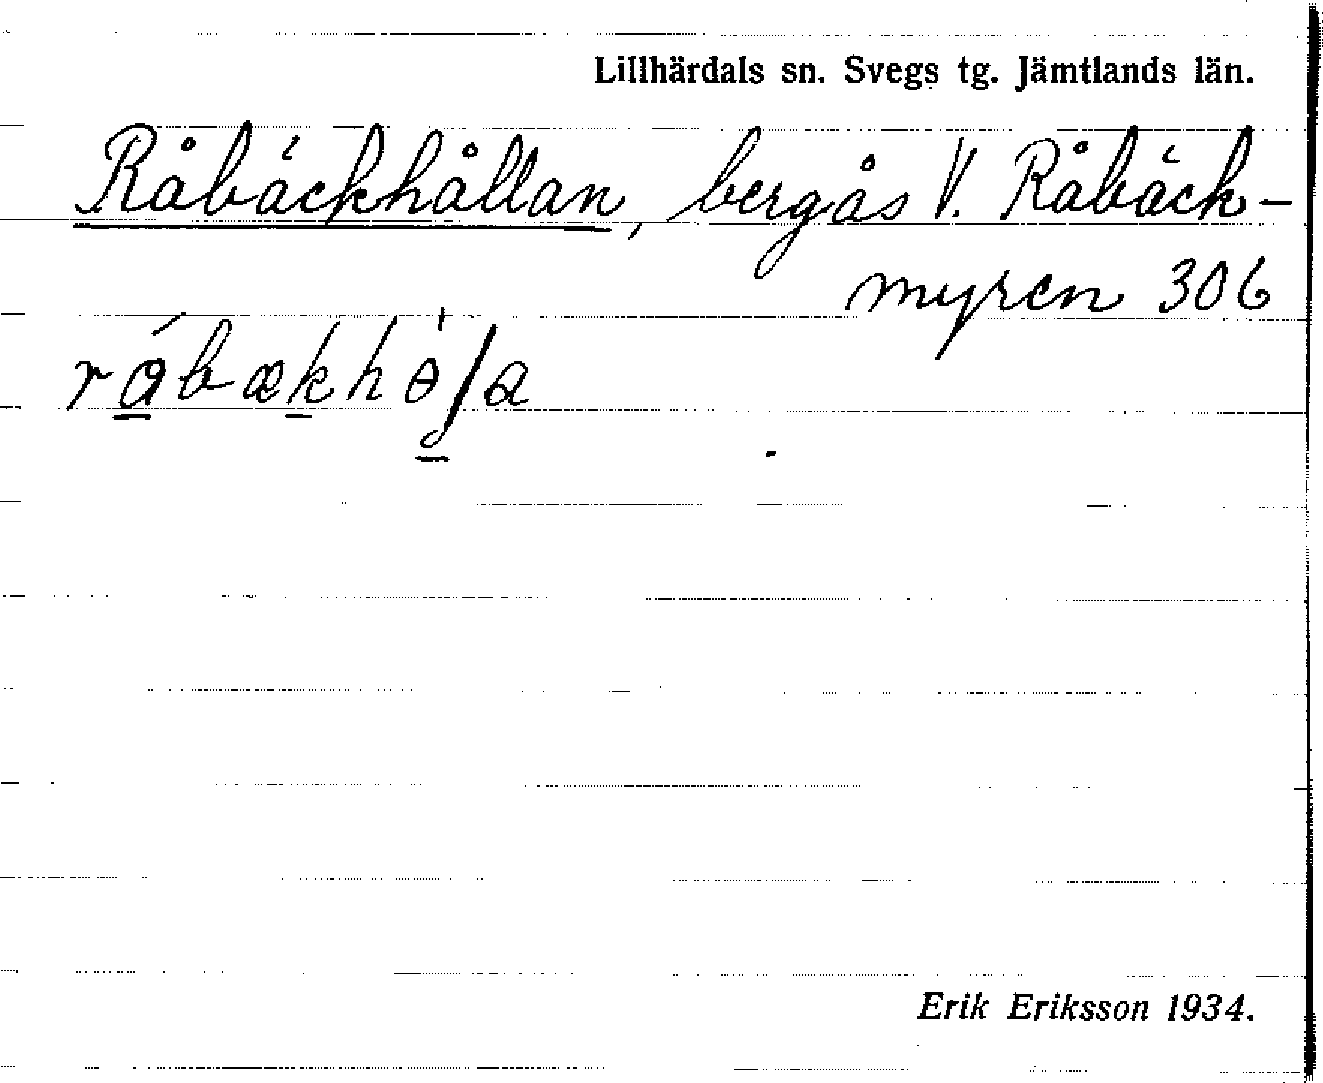 Lillhärdals sn. Svegs tg. Jämtlands län.
Råbäckhållan, bergås V. Råbäck-
myren 306
Erik Eriksson 1934.